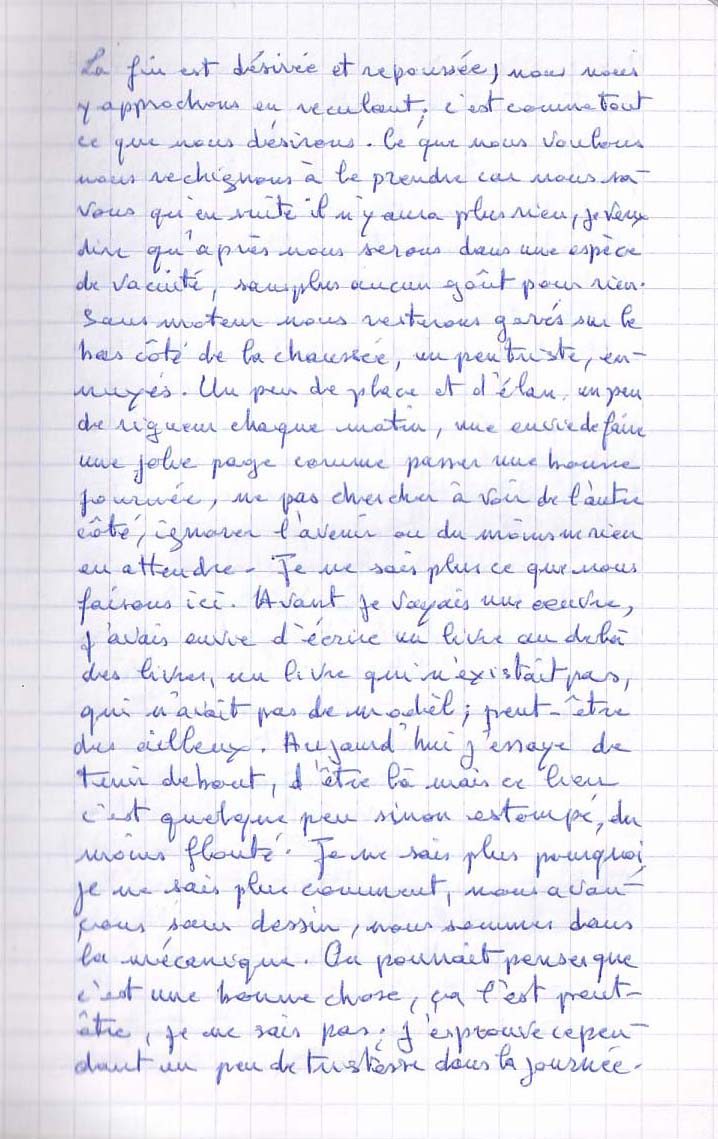 La fin est désirée et repoussée, nous nous
y approchons en reculant; c'est comme tout
ce que nous désirons. Ce que nous voulons
nous rechignons à le prendre car nous sa-
vons qu'ensuite il n'y aura plus rien, je veux
dire qu'après nous serons dans une espèce
de vacuité, sans plus aucun goût pour rien.
Sans moteur nous resterons garés sur le
bas côté de la chaussée, un peu triste, en-
nuyés. Un peu de place et d'élan, un peu
de rigueur chaque matin, une envie de faire
une jolie page comme passer une bonne
journée, ne pas chercher à voir de l'autre
côté, ignorer l'avenir ou du moins ne rien
en attendre. Je ne sais plus ce que nous
faisons ici. Avant je voyais une oeuvre,
j'avais envie d'écrire un livre au delà
des livres, un livre qui n'existait pas,
qui n'avait pas de modèl; peut-être
des ailleux. Aujourd'hui j'essaye de
tenir debout, d'être là mais ce lieu
c'est quelque peu sinon estompé, du
moins flouté. Je ne sais plus pourquoi,
je ne sais plus comment, nous avan-
çons sans dessin, nous sommes dans
la mécanique. On pourrait penser que
c'est une bonne chose, ça l'est peut-
être, je ne sais pas; j'éprouve cepen-
dant un peu de tristesse dans la journée.